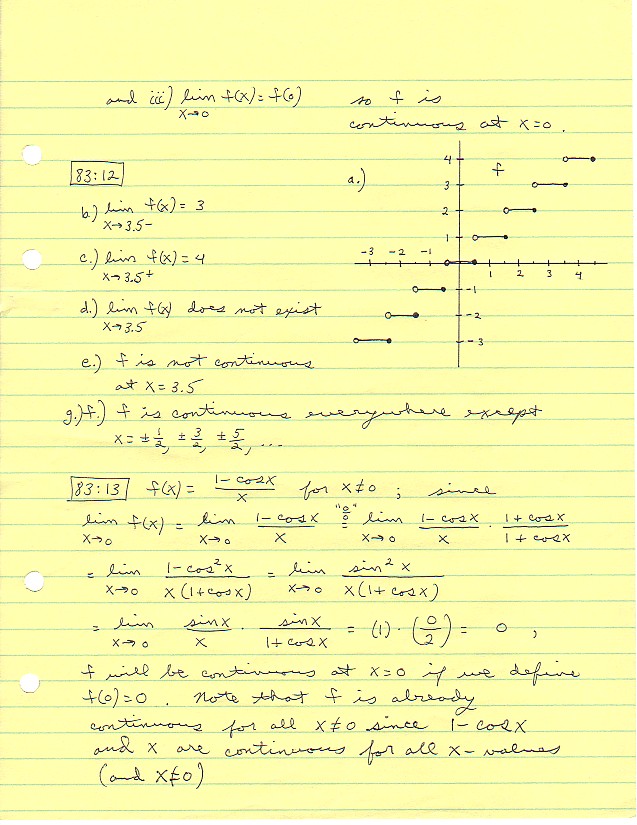 and iii) lim f(x) = f(0) so f is
x→0 continuous at x=0.
83:12
a.)
f
4
3
2
1
-3 -2 -1 1 2 3 4
-1
-2
-3
b.) lim f(x) = 3
x→3.5-
c.) lim f(x) = 4
x→3.5+
d.) lim f(x) does not exist
x→3.5
e.) f is not continuous
at x = 3.5
g.) f.) f is continuous everywhere except
x = ± 1/2, ± 3/2, ± 5/2, ...
83:13 f(x) = (1-cosx)/x for x≠0 ; since
lim f(x) = lim (1-cosx)/x "0/0"= lim (1-cosx)/x · (1+cosx)/(1+cosx)
x→0 x→0 x→0
= lim (1-cos²x)/(x(1+cosx)) = lim (sin²x)/(x(1+cosx))
x→0 x→0
= lim (sinx)/x · (sinx)/(1+cosx) = (1)·(0/2) = 0 ,
x→0
f will be continuous at x=0 if we define
f(0)=0 . Note that f is already
continuous for all x≠0 since 1-cosx
and x are continuous for all x-values
(and x≠0)